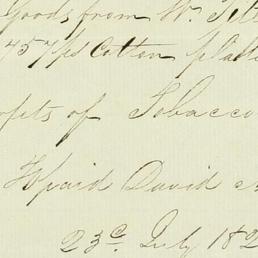 Goods from W.
457 ps Cotton
ofits of Tobacco
paid David
23d. July 18